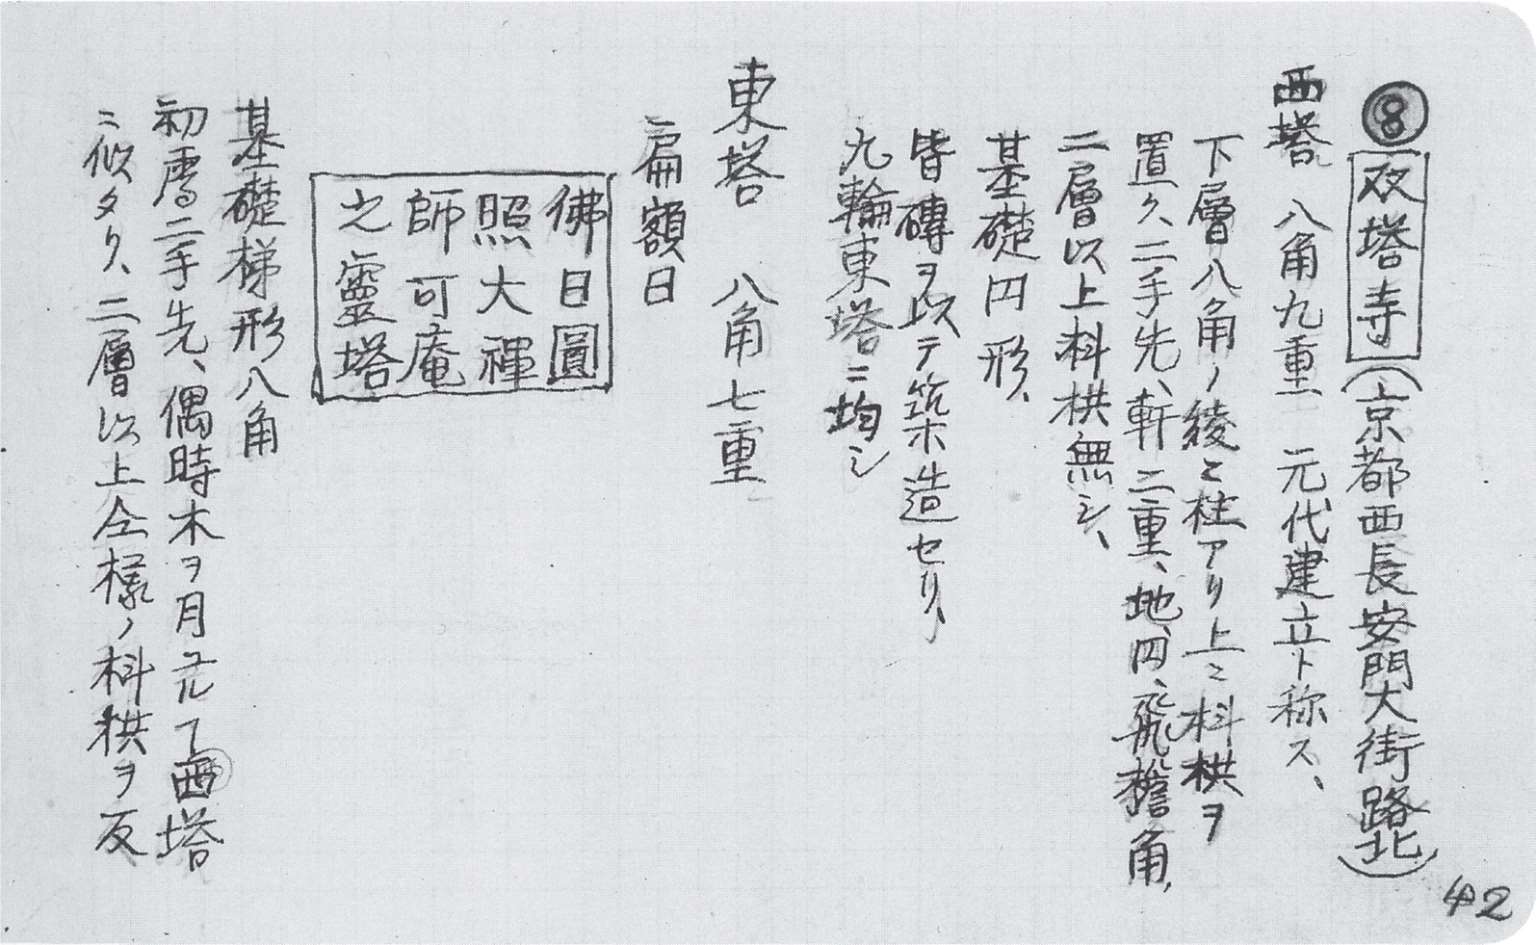 ⑧ 双塔寺（京都西長安門大街路北）
西塔 八角九重 元代建立ト称ス、
下層八角ノ綾ニ柱アリ上ニ科栱ヲ
置ク、二手先、軒二重、地、円、飛檐角、
二層以上科栱無シ、
基礎円形、
皆磚ヲ以テ築造セリ、
九輪東塔ニ均シ
東塔 八角七重
扁額曰
佛日圓
照大禪
師可庵
之靈塔
基礎梯形八角
初層二手先、偶時木ヲ月元了西塔
ニ似タリ、二層以上仝様ノ科栱ヲ反
42